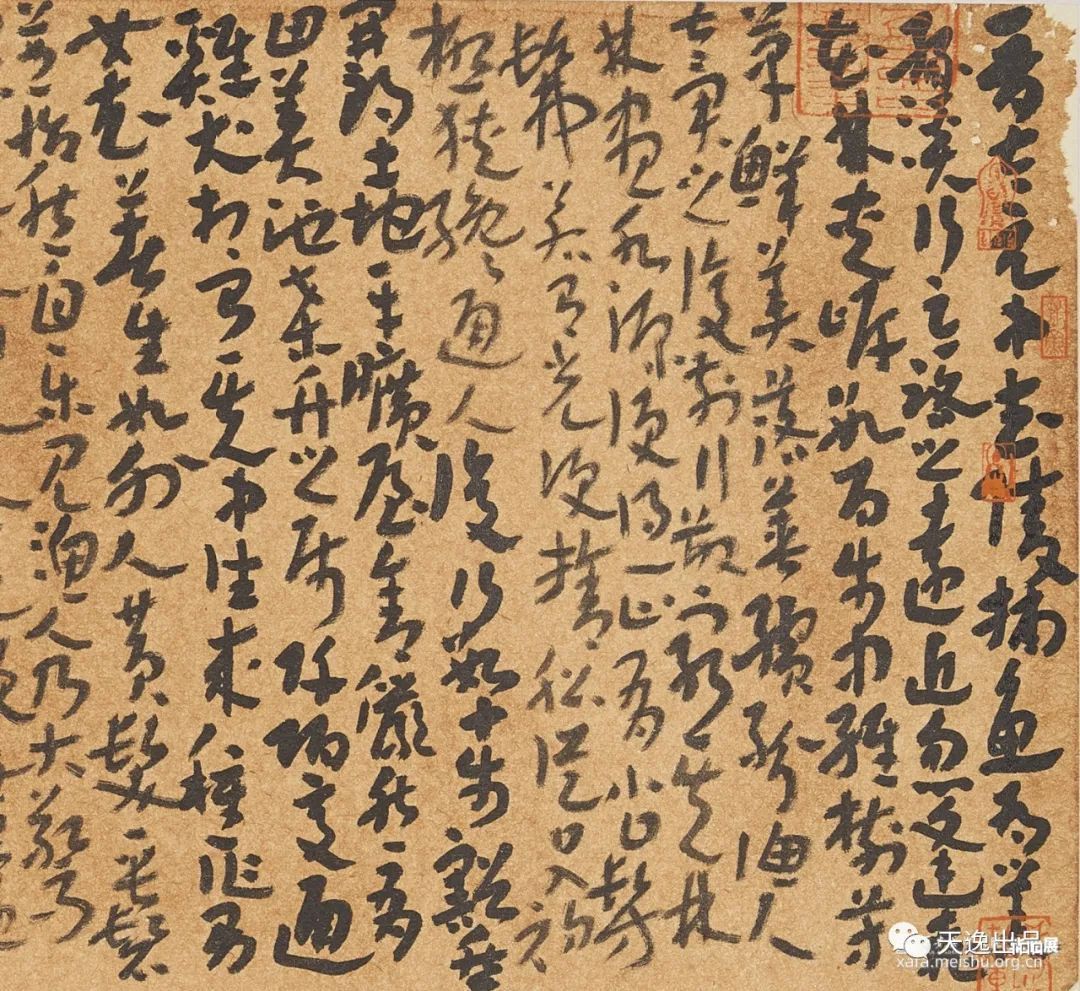 晋太元中武陵捕魚為業
緣溪行忘路之遠近忽逢桃
花林夾岸數百步中雜樹芳
草鮮美落英繽紛漁人
甚異之復前行欲窮其林
林盡水源便得一山有小口髣
髴若有光便捨船從口入初
極狹纔通人復行數十步豁然
開朗土地平曠屋舍儼然有
田美池桑竹之屬阡陌交通
雞犬相聞其中往來種作男
女衣著悉如外人黃髮垂髫
並怡然自樂見漁人乃大驚問
天逸出品
xara.meishu.org.cn